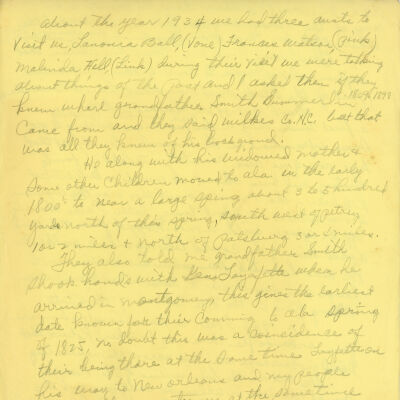 About the year 1934 we had three aunts to
visit us, Lenoura Ball, (Vone) Frances Watson, (Pink)
Malinda Hill, (Link) during their visit we were talking
about things of the past and I asked them if they
knew where grandfather Smith Summerlin
1804-1898
came from and they said Wilkes Co. N.C. but that
was all they knew of his background.
He along with his widowed mother &
some other children moved to Ala. in the early
1800s to near a large spring about 3 to 5 hundred
yards north of this spring, south west of Petrey
1 or 2 miles & north of Patsburg 3 or 4 miles.
They also told me grandfather Smith
shook hands with Gens Layfette when he
arrived in Montgomery, this gives the earliest
date known for their coming to Ala Spring
of 1825, no doubt this was a coincidence of
their being there at the same time Layfette on
his way to New Orleans and my people
at the same time